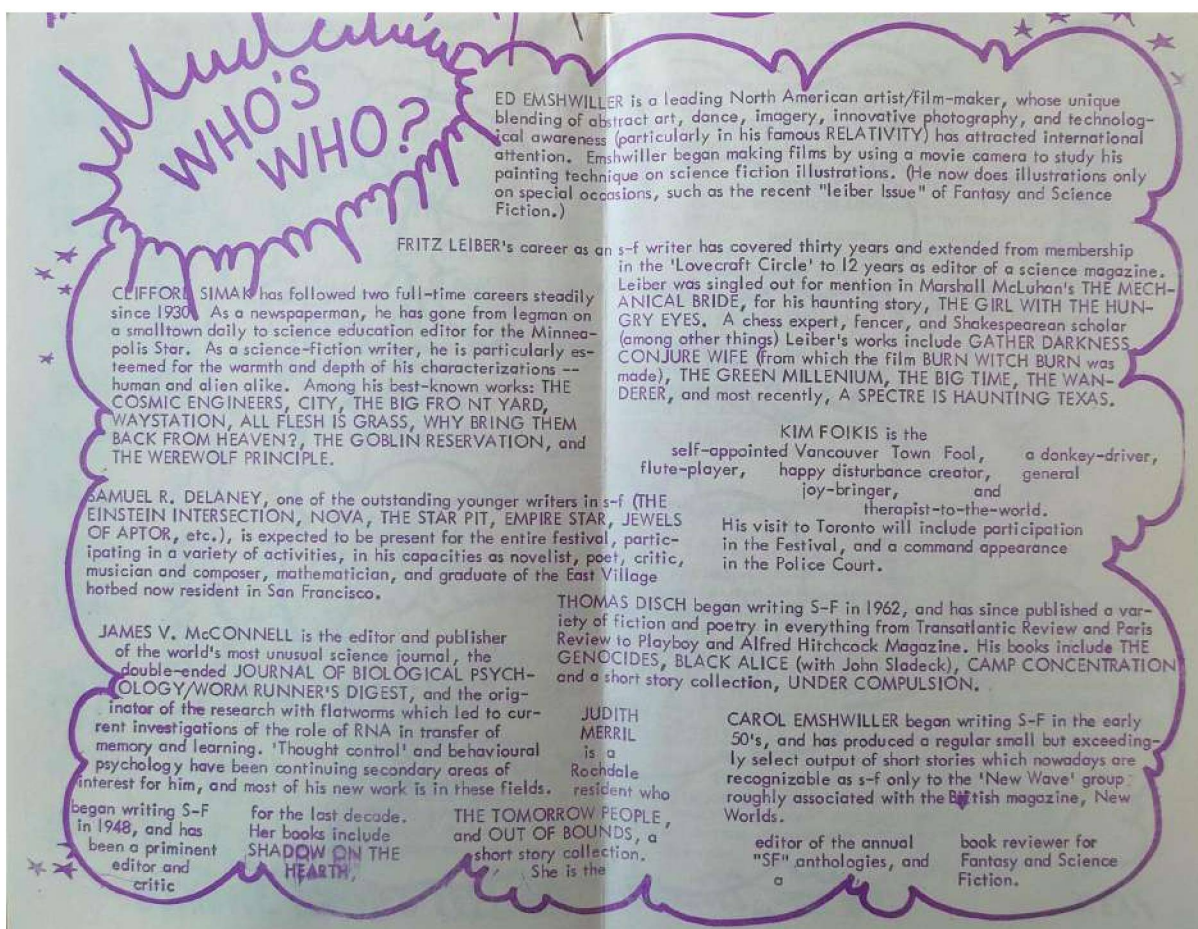 WHO'S
WHO?
ED EMSHWILLER is a leading North American artist/film-maker, whose unique
blending of abstract art, dance, imagery, innovative photography, and technolog-
ical awareness (particularly in his famous RELATIVITY) has attracted international
attention. Emshwiller began making films by using a movie camera to study his
painting technique on science fiction illustrations. (He now does illustrations only
on special occasions, such as the recent "leiber Issue" of Fantasy and Science
Fiction.)
FRITZ LEIBER's career as an s-f writer has covered thirty years and extended from membership
in the 'Lovecraft Circle' to 12 years as editor of a science magazine.
Leiber was singled out for mention in Marshall McLuhan's THE MECH-
ANICAL BRIDE, for his haunting story, THE GIRL WITH THE HUN-
GRY EYES. A chess expert, fencer, and Shakespearean scholar
(among other things) Leiber's works include GATHER DARKNESS
CONJURE WIFE (from which the film BURN WITCH BURN was
made), THE GREEN MILLENIUM, THE BIG TIME, THE WAN-
DERER, and most recently, A SPECTRE IS HAUNTING TEXAS.
CLIFFORD SIMAK has followed two full-time careers steadily
since 1930. As a newspaperman, he has gone from legman on
a smalltown daily to science education editor for the Minnea-
polis Star. As a science-fiction writer, he is particularly es-
teemed for the warmth and depth of his characterizations --
human and alien alike. Among his best-known works: THE
COSMIC ENGINEERS, CITY, THE BIG FRO NT YARD,
WAYSTATION, ALL FLESH IS GRASS, WHY BRING THEM
BACK FROM HEAVEN?, THE GOBLIN RESERVATION, and
THE WEREWOLF PRINCIPLE.
KIM FOIKIS is the
self-appointed Vancouver Town Fool, a donkey-driver,
flute-player, happy disturbance creator, general
joy-bringer, and
therapist-to-the-world.
His visit to Toronto will include participation
in the Festival, and a command appearance
in the Police Court.
SAMUEL R. DELANEY, one of the outstanding younger writers in s-f (THE
EINSTEIN INTERSECTION, NOVA, THE STAR PIT, EMPIRE STAR, JEWELS
OF APTOR, etc.), is expected to be present for the entire festival, partic-
ipating in a variety of activities, in his capacities as novelist, poet, critic,
musician and composer, mathematician, and graduate of the East Village
hotbed now resident in San Francisco.
THOMAS DISCH began writing S-F in 1962, and has since published a var-
iety of fiction and poetry in everything from Transatlantic Review and Paris
Review to Playboy and Alfred Hitchcock Magazine. His books include THE
GENOCIDES, BLACK ALICE (with John Sladeck), CAMP CONCENTRATION
and a short story collection, UNDER COMPULSION.
JAMES V. McCONNELL is the editor and publisher
of the world's most unusual science journal, the
double-ended JOURNAL OF BIOLOGICAL PSYCH-
OLOGY/WORM RUNNER'S DIGEST, and the orig-
inator of the research with flatworms which led to cur-
rent investigations of the role of RNA in transfer of
memory and learning. 'Thought control' and behavioural
psychology have been continuing secondary areas of
interest for him, and most of his new work is in these fields.
CAROL EMSHWILLER began writing S-F in the early
50's, and has produced a regular small but exceeding-
ly select output of short stories which nowadays are
recognizable as s-f only to the 'New Wave' group
roughly associated with the British magazine, New
Worlds.
JUDITH
MERRIL
is a
Rochdale
resident who
began writing S-F
in 1948, and has
been a prominent
editor and
critic
for the last decade.
Her books include
SHADOW ON THE
HEARTH,
THE TOMORROW PEOPLE,
and OUT OF BOUNDS, a
short story collection.
She is the
editor of the annual
"SF" anthologies, and
a
book reviewer for
Fantasy and Science
Fiction.